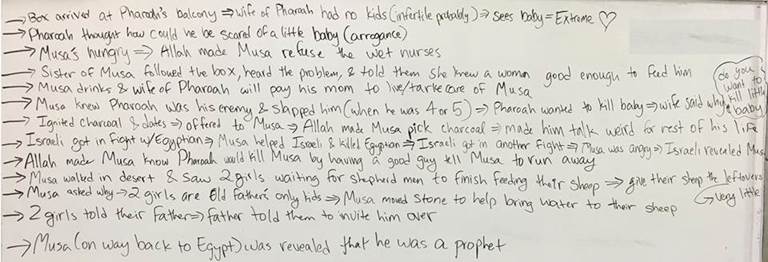 → Box arrived at Pharoah's balcony ⇒ wife of Pharoah had no kids (infertile probably) ⇒ sees baby = Extreme ♡
→ Pharoah thought how could we be scared of a little baby (arrogance)
→ Musa's hungry ⇒ Allah made Musa refuse the wet nurses
→ Sister of Musa followed the box, heard the problem, & told them she knew a woman good enough to feed him
→ Musa drinks & wife of Pharoah will pay his mom to live/take care of Musa
→ Musa knew Pharoah was his enemy & slapped him (when he was 4 or 5) ⇒ Pharoah wanted to kill baby ⇒ wife said why
do you want to kill little baby
→ Ignited charcoal & dates ⇒ offered to Musa ⇒ Allah made Musa pick charcoal ⇒ made him talk weird for rest of his life
→ Israeli got in fight w/Egyptian ⇒ Musa helped Israeli & killed Egyptian ⇒ Israeli got in another fight ⇒ Musa was angry ⇒ Israeli revealed Musa
→ Allah made Musa know Pharoah would kill Musa by having a good guy tell Musa to run away
→ Musa walked in desert & saw 2 girls waiting for shepherd men to finish feeding their sheep ⇒ give their sheep the leftovers
→ very little
→ Musa asked why → 2 girls are old father's only kids ⇒ Musa moved stone to help bring water to their sheep
→ 2 girls told their father ⇒ father told them to invite him over
→ Musa (on way back to Egypt) was revealed that he was a prophet